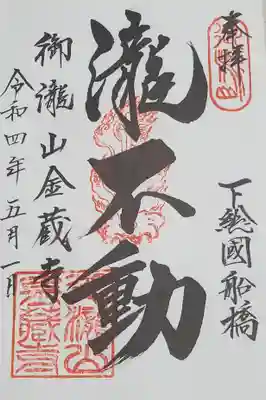 奉拝
下總國船橋
瀧不動
御瀧山金蔵寺
令和四年五月一日